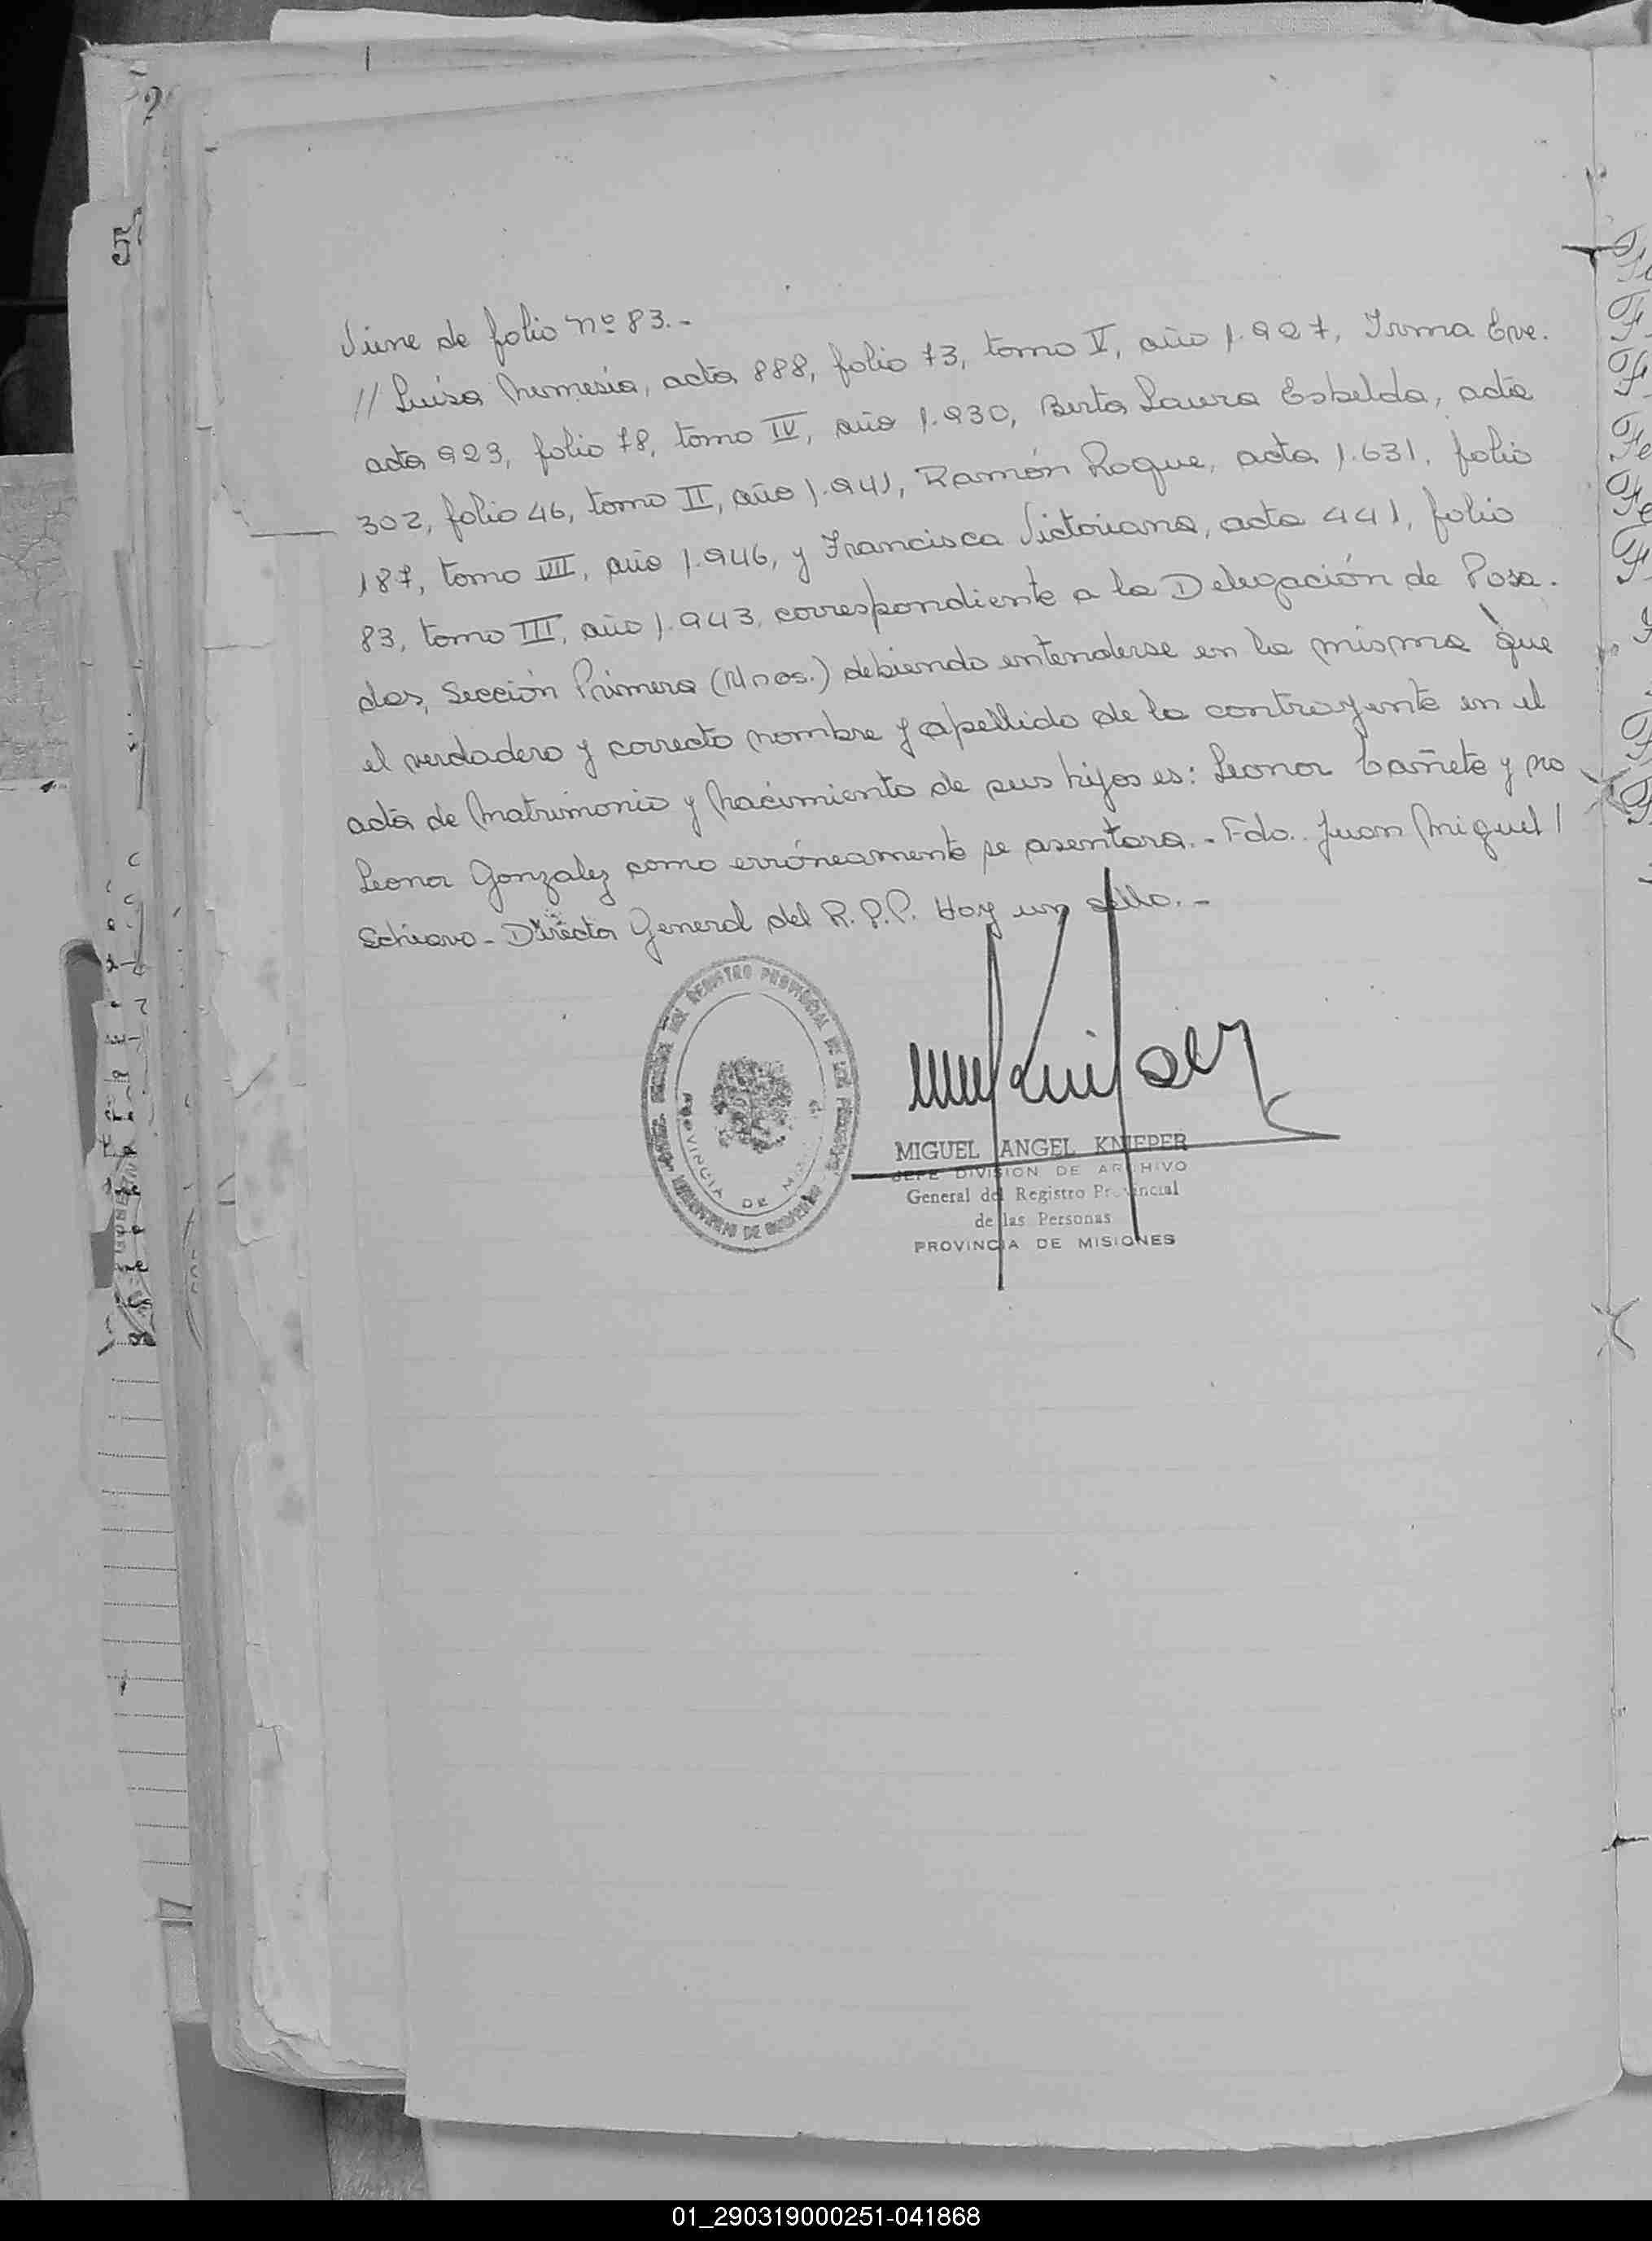 Viene de folio nº 83.-
// Luisa Nemesia, acta 888, folio 73, tomo V, año 1.927, Irma Eve.
acta 923, folio 78, tomo IV, año 1.930, Berta Laura Esbelda, acta
302, folio 46, tomo II, año 1.941, Ramón Roque, acta 1.631, folio
187, tomo VIII, año 1.946, y Francisca Victoriana, acta 441, folio
83, tomo III, año 1.943, correspondiente a la Delegación de Posa.
das, Sección Primera (Nnos.) debiendo entenderse en la misma que
el verdadero y correcto nombre y apellido de la contrayente en el
acta de Matrimonio y Nacimiento de sus hijos es: Leonor Cañete y no
Leonor Gonzalez como erróneamente se asentara.- Fdo. Juan Miguel /
Schiavo - Director General del R.P.P. Hay un sello.-
REGISTRO PROVINCIAL DE LAS PERSONAS
PROVINCIA DE
MIGUEL ANGEL KNIEPER
JEFE DIVISION DE ARCHIVO
General del Registro Provincial
de las Personas
PROVINCIA DE MISIONES
5
01_290319000251-041868